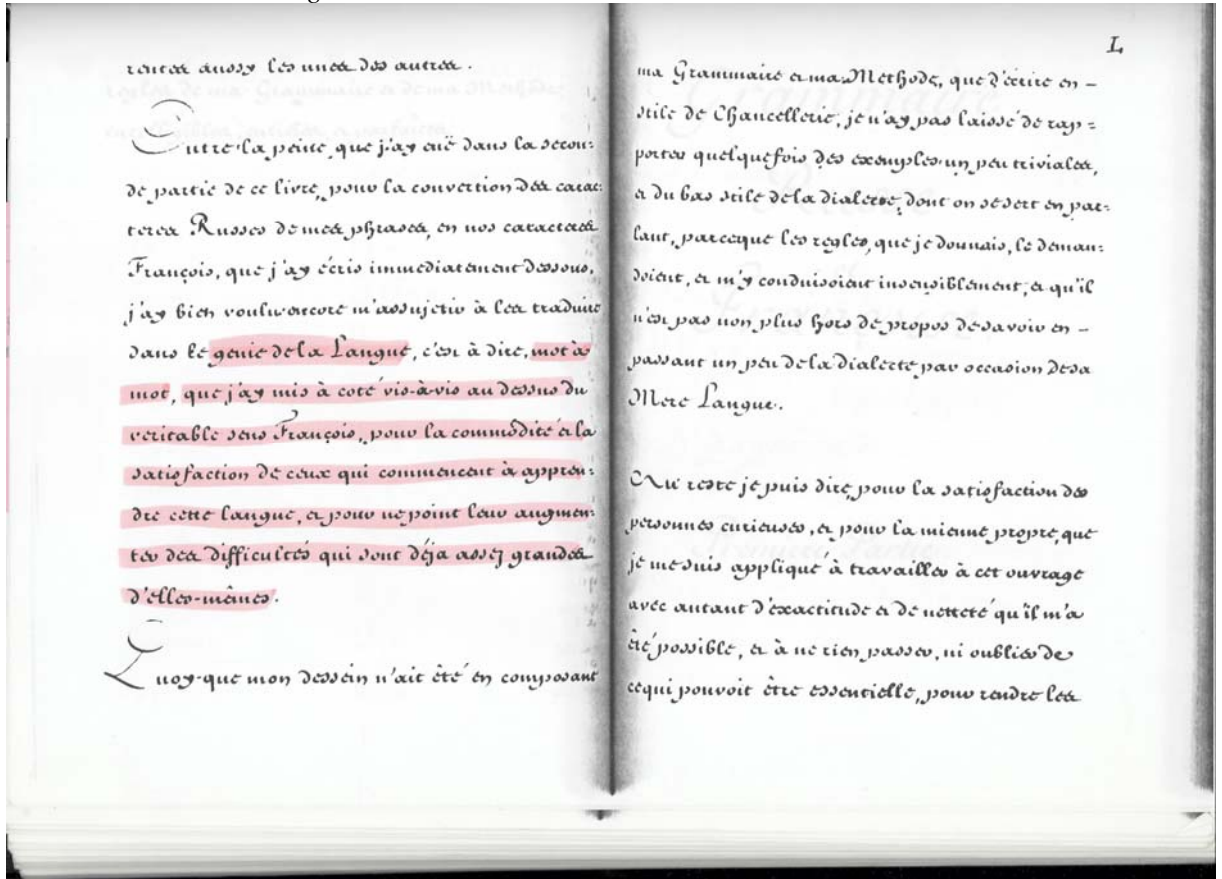 rentes aussy les unes des autres.
Outre la peine, que j'ay euë dans la secon:
de partie de ce livre, pour la convertion des carac:
teres Russes de mes phrases, en nos caracteres
François, que j'ay écris immediatement dessous,
j'ay bien voulu encore m'assujetir à les traduire
dans le genie de la Langue, c'est à dire, mot à
mot, que j'ay mis à coté vis-à-vis au dessus du
veritable sens François, pour la commodité et la
satisfaction de ceux qui commencent à appren:
dre cette langue, et pour ne point leur augmen:
ter des difficultés qui sont déja assez grandes
d'elles-mêmes.
Quoy-que mon dessein n'ait été en composant
L
ma Grammaire et ma Methode, que d'écrire en –
stile de Chancellerie, je n'ay pas laissé de rap =
porter quelquefois des exemples un peu triviales,
et du bas stile de la dialecte, dont on se sert en par:
lant, parceque les regles, que je donnais, le deman:
doient, et m'y conduisoient insensiblement, et qu'il
n'est pas non plus hors de propos de savoir en –
passant un peu de la dialecte par occasion de sa
Mere Langue.
Au reste je puis dire, pour la satisfaction des
personnes curieuses, et pour la mienne propre, que
je me suis appliqué à travailler à cet ouvrage
avec autant d'exactitude et de netteté qu'il m'a
été possible, et à ne rien passer, ni oublier de
cequi pouvoit être essentielle, pour rendre les